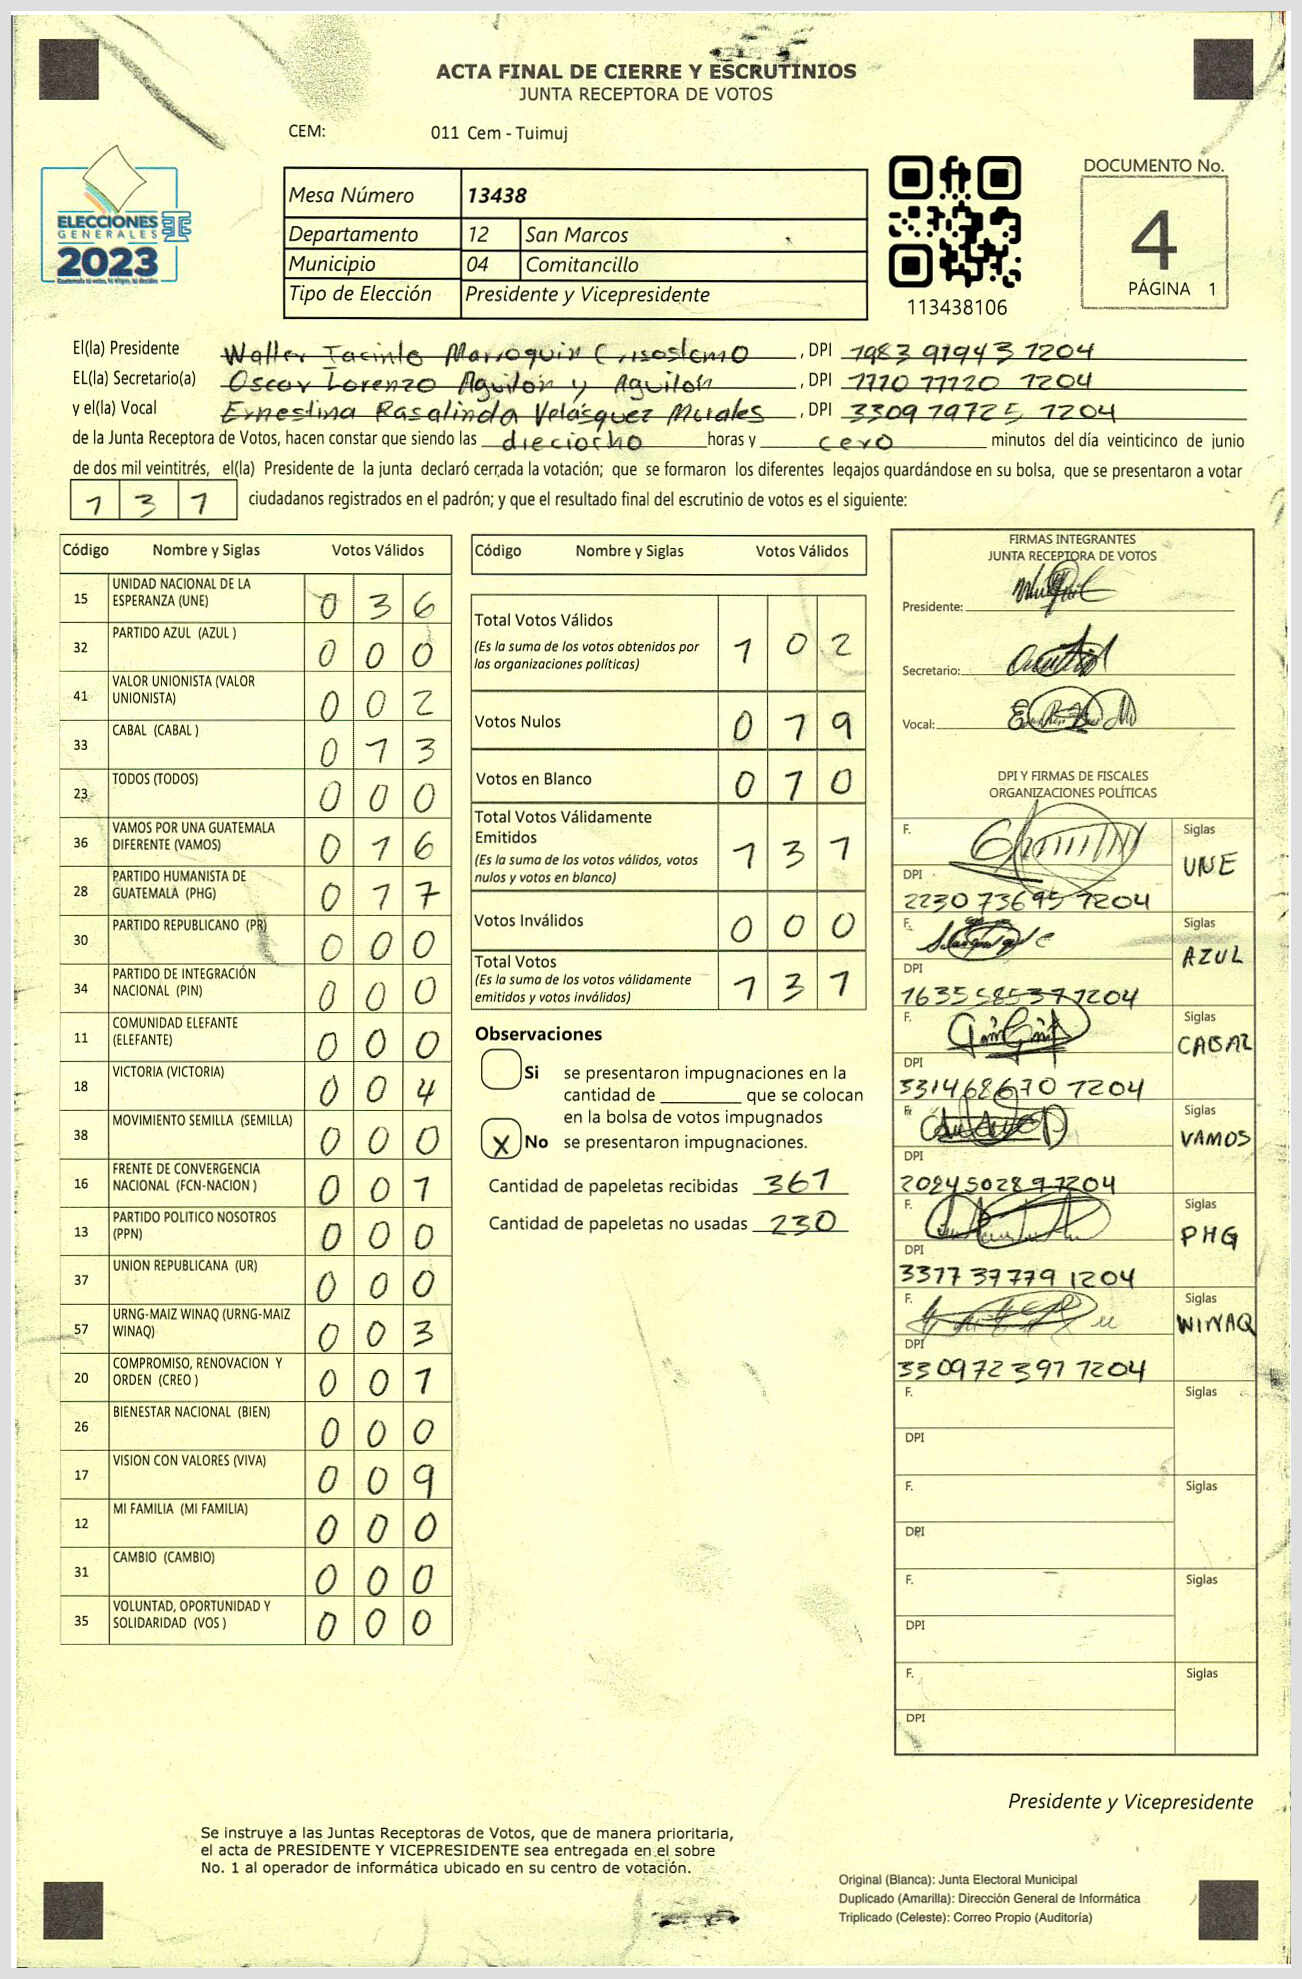 ACTA FINAL DE CIERRE Y ESCRUTINIOS
JUNTA RECEPTORA DE VOTOS
CEM: 011 Cem - Tuimuj
ELECCIONES
GENERALES
2023
Mesa Número 13438
Departamento 12 San Marcos
Municipio 04 Comitancillo
Tipo de Elección Presidente y Vicepresidente
113438106
DOCUMENTO No.
4
PÁGINA 1
El(la) Presidente Walter Jacinto Marroquin Crisostomo, DPI 1983 91943 1204
EL(la) Secretario(a) Oscar Lorenzo Aguilón y Aguilón, DPI 1110 11120 1204
y el(la) Vocal Ernestina Rosalinda Velásquez Morales, DPI 3309 19725 1204
de la Junta Receptora de Votos, hacen constar que siendo las dieciocho horas y cero minutos del día veinticinco de junio
de dos mil veintitrés, el(la) Presidente de la junta declaró cerrada la votación; que se formaron los diferentes legajos quardándose en su bolsa, que se presentaron a votar
1 3 1 ciudadanos registrados en el padrón; y que el resultado final del escrutinio de votos es el siguiente:
Código Nombre y Siglas Votos Válidos
15 UNIDAD NACIONAL DE LA ESPERANZA (UNE) 0 3 6
32 PARTIDO AZUL (AZUL ) 0 0 0
41 VALOR UNIONISTA (VALOR UNIONISTA) 0 0 2
33 CABAL (CABAL ) 0 1 3
23 TODOS (TODOS) 0 0 0
36 VAMOS POR UNA GUATEMALA DIFERENTE (VAMOS) 0 1 6
28 PARTIDO HUMANISTA DE GUATEMALA (PHG) 0 1 7
30 PARTIDO REPUBLICANO (PR) 0 0 0
34 PARTIDO DE INTEGRACIÓN NACIONAL (PIN) 0 0 0
11 COMUNIDAD ELEFANTE (ELEFANTE) 0 0 0
18 VICTORIA (VICTORIA) 0 0 4
38 MOVIMIENTO SEMILLA (SEMILLA) 0 0 0
16 FRENTE DE CONVERGENCIA NACIONAL (FCN-NACION ) 0 0 1
13 PARTIDO POLITICO NOSOTROS (PPN) 0 0 0
37 UNION REPUBLICANA (UR) 0 0 0
57 URNG-MAIZ WINAQ (URNG-MAIZ WINAQ) 0 0 3
20 COMPROMISO, RENOVACION Y ORDEN (CREO ) 0 0 1
26 BIENESTAR NACIONAL (BIEN) 0 0 0
17 VISION CON VALORES (VIVA) 0 0 9
12 MI FAMILIA (MI FAMILIA) 0 0 0
31 CAMBIO (CAMBIO) 0 0 0
35 VOLUNTAD, OPORTUNIDAD Y SOLIDARIDAD (VOS ) 0 0 0
Código Nombre y Siglas Votos Válidos
Total Votos Válidos 1 0 2
(Es la suma de los votos obtenidos por
las organizaciones políticas)
Votos Nulos 0 1 9
Votos en Blanco 0 1 0
Total Votos Válidamente
Emitidos 1 3 1
(Es la suma de los votos válidos, votos
nulos y votos en blanco)
Votos Inválidos 0 0 0
Total Votos 1 3 1
(Es la suma de los votos válidamente
emitidos y votos inválidos)
Observaciones
Si se presentaron impugnaciones en la
cantidad de ________ que se colocan
en la bolsa de votos impugnados
X No se presentaron impugnaciones.
Cantidad de papeletas recibidas 361
Cantidad de papeletas no usadas 230
FIRMAS INTEGRANTES
JUNTA RECEPTORA DE VOTOS
Presidente:
Secretario:
Vocal:
DPI Y FIRMAS DE FISCALES
ORGANIZACIONES POLÍTICAS
F. Siglas
UNE
DPI
2230 73695 1204
F. Siglas
AZUL
DPI
1635 58537 1204
F. Siglas
CABAL
DPI
331468670 1204
F. Siglas
VAMOS
DPI
202450289 1204
F. Siglas
PHG
DPI
3317 37779 1204
F. Siglas
WINAQ
DPI
330972397 1204
F. Siglas
DPI
F. Siglas
DPI
F. Siglas
DPI
F. Siglas
DPI
Presidente y Vicepresidente
Se instruye a las Juntas Receptoras de Votos, que de manera prioritaria,
el acta de PRESIDENTE Y VICEPRESIDENTE sea entregada en el sobre
No. 1 al operador de informática ubicado en su centro de votación.
Original (Blanca): Junta Electoral Municipal
Duplicado (Amarilla): Dirección General de Informática
Triplicado (Celeste): Correo Propio (Auditoría)